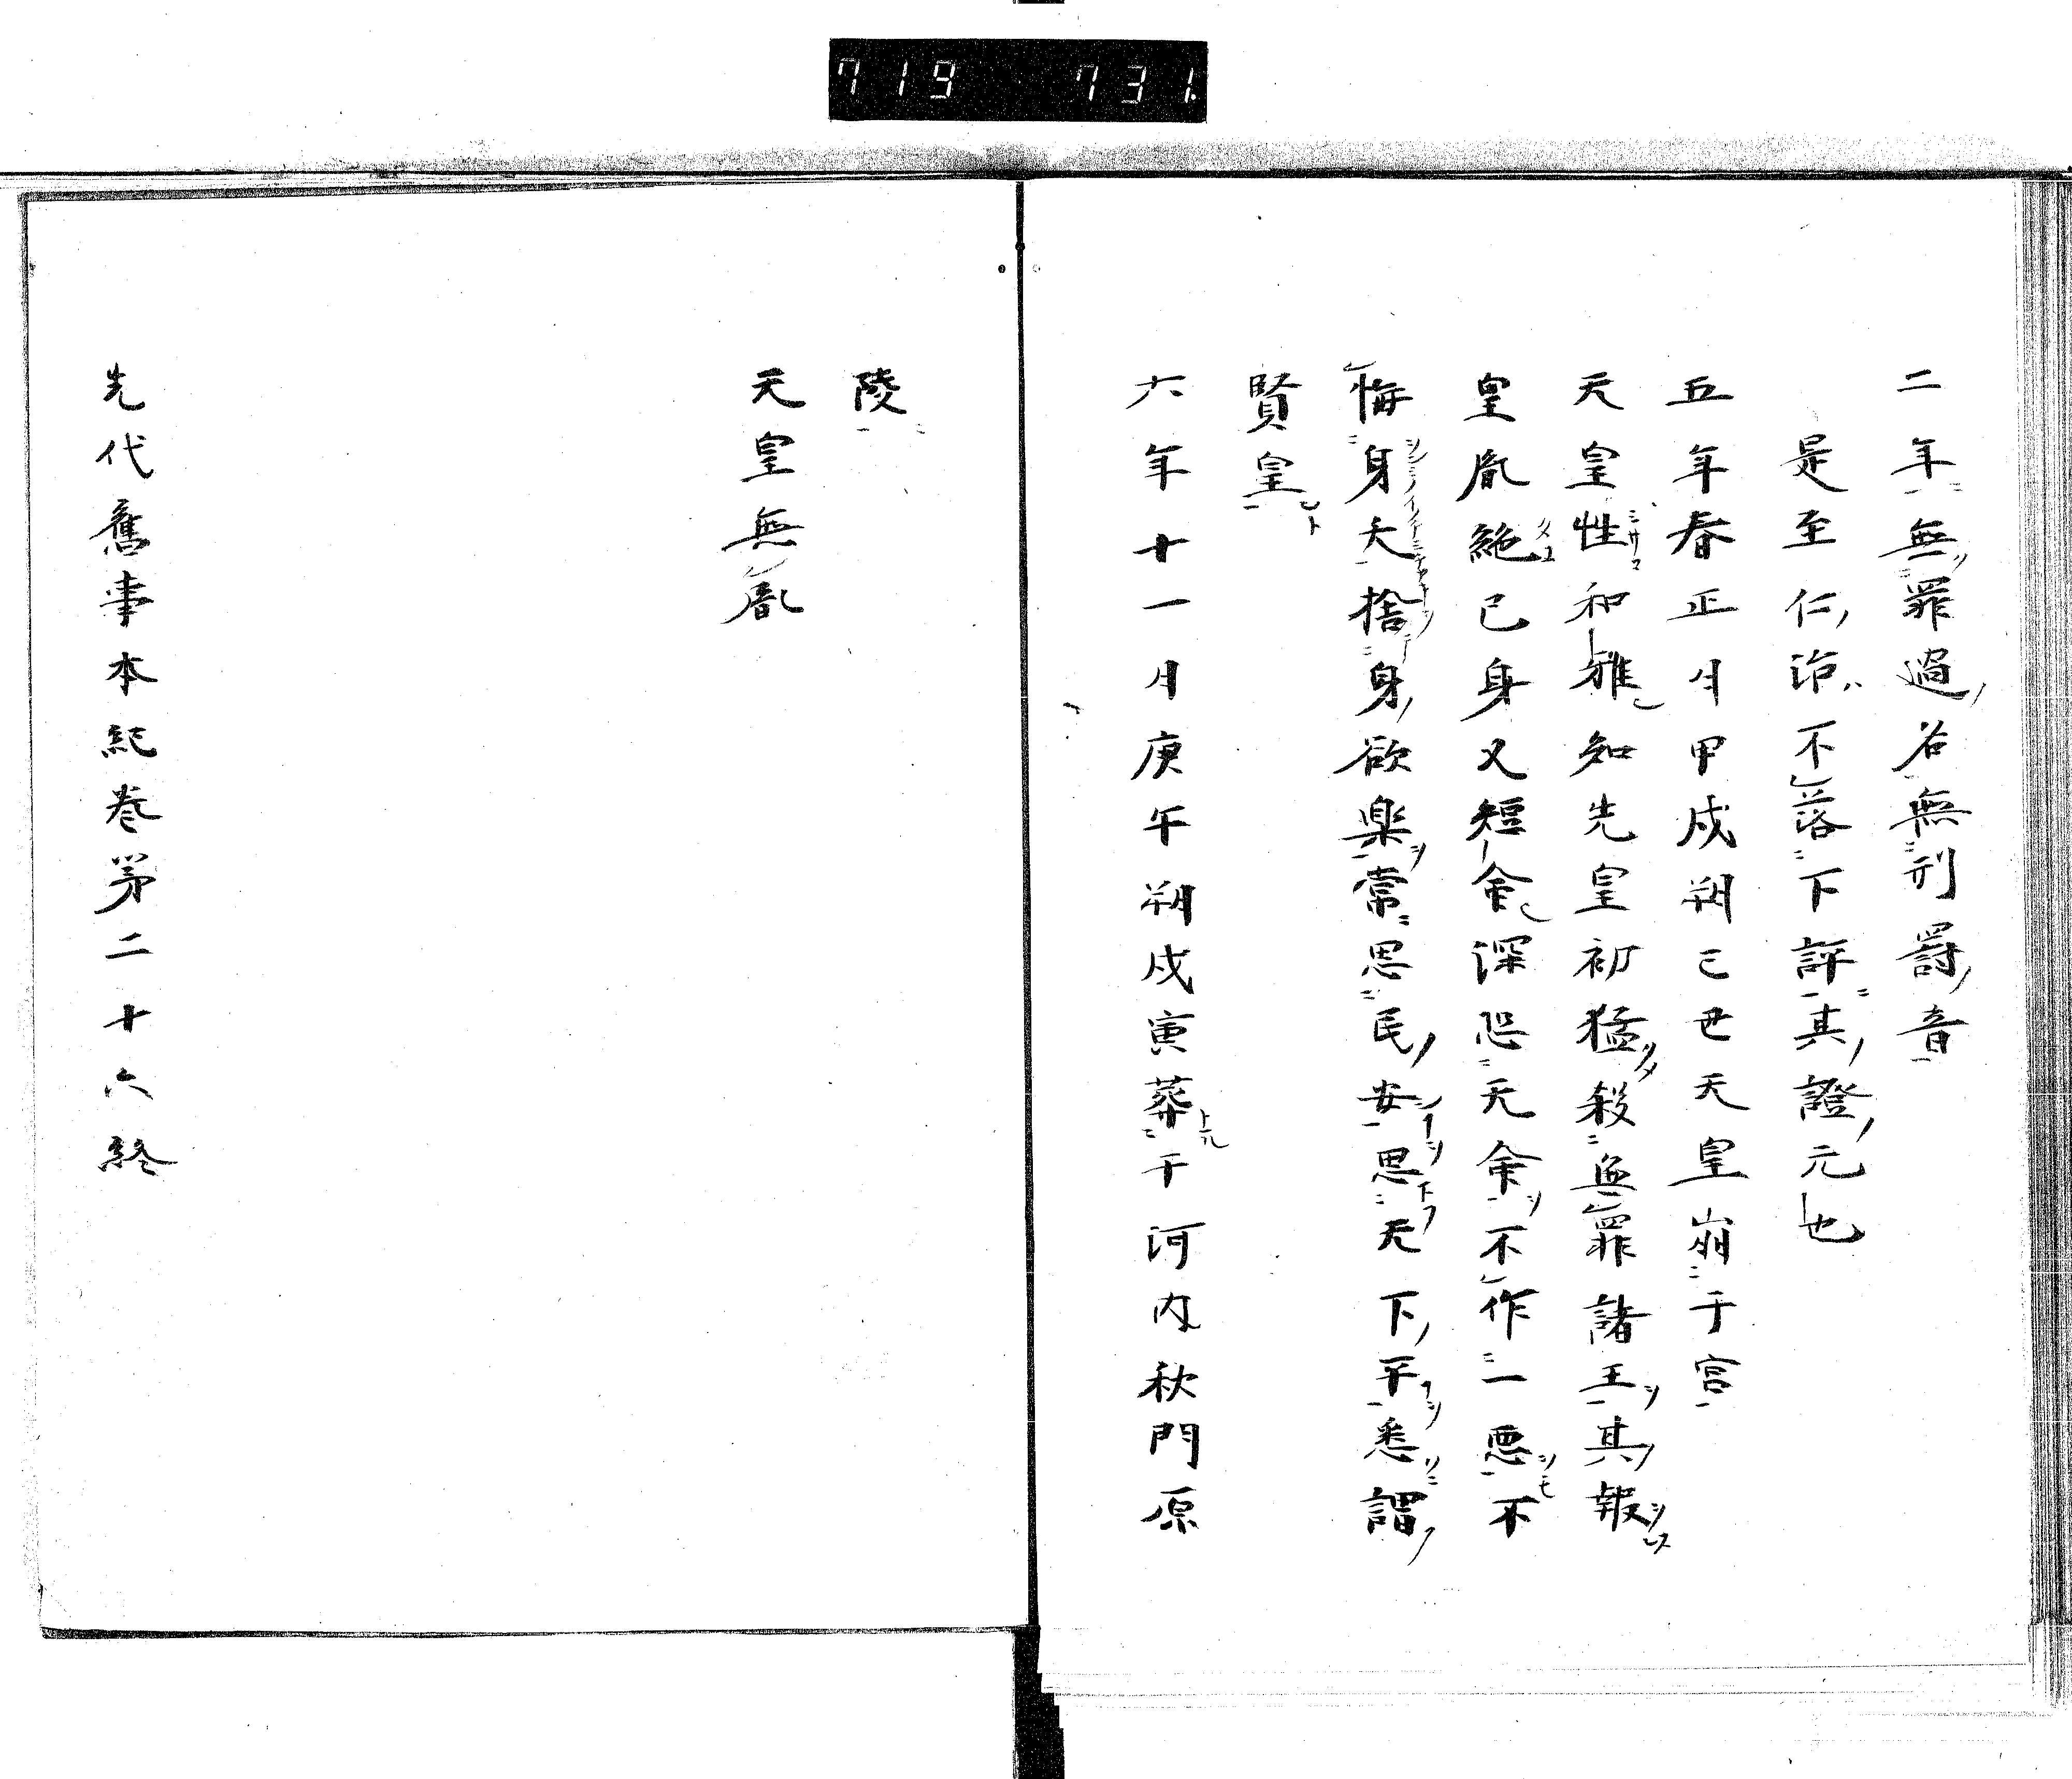 719 731
二年無罪過名無刑罰音
是至仁治不落下評其證元也
五年春正月甲戌朔己丑天皇崩于宮
天皇性和雅知先皇初猛殺無罪諸王其報
皇胤絶已身又短命深恐天命不作一悪不
悔身夭捨身欲楽常思民安思天下平悉謂
賢皇
六年十一月庚午朔戊寅葬于河内秋門原
陵
天皇無胤
先代舊事本紀巻第二十六終